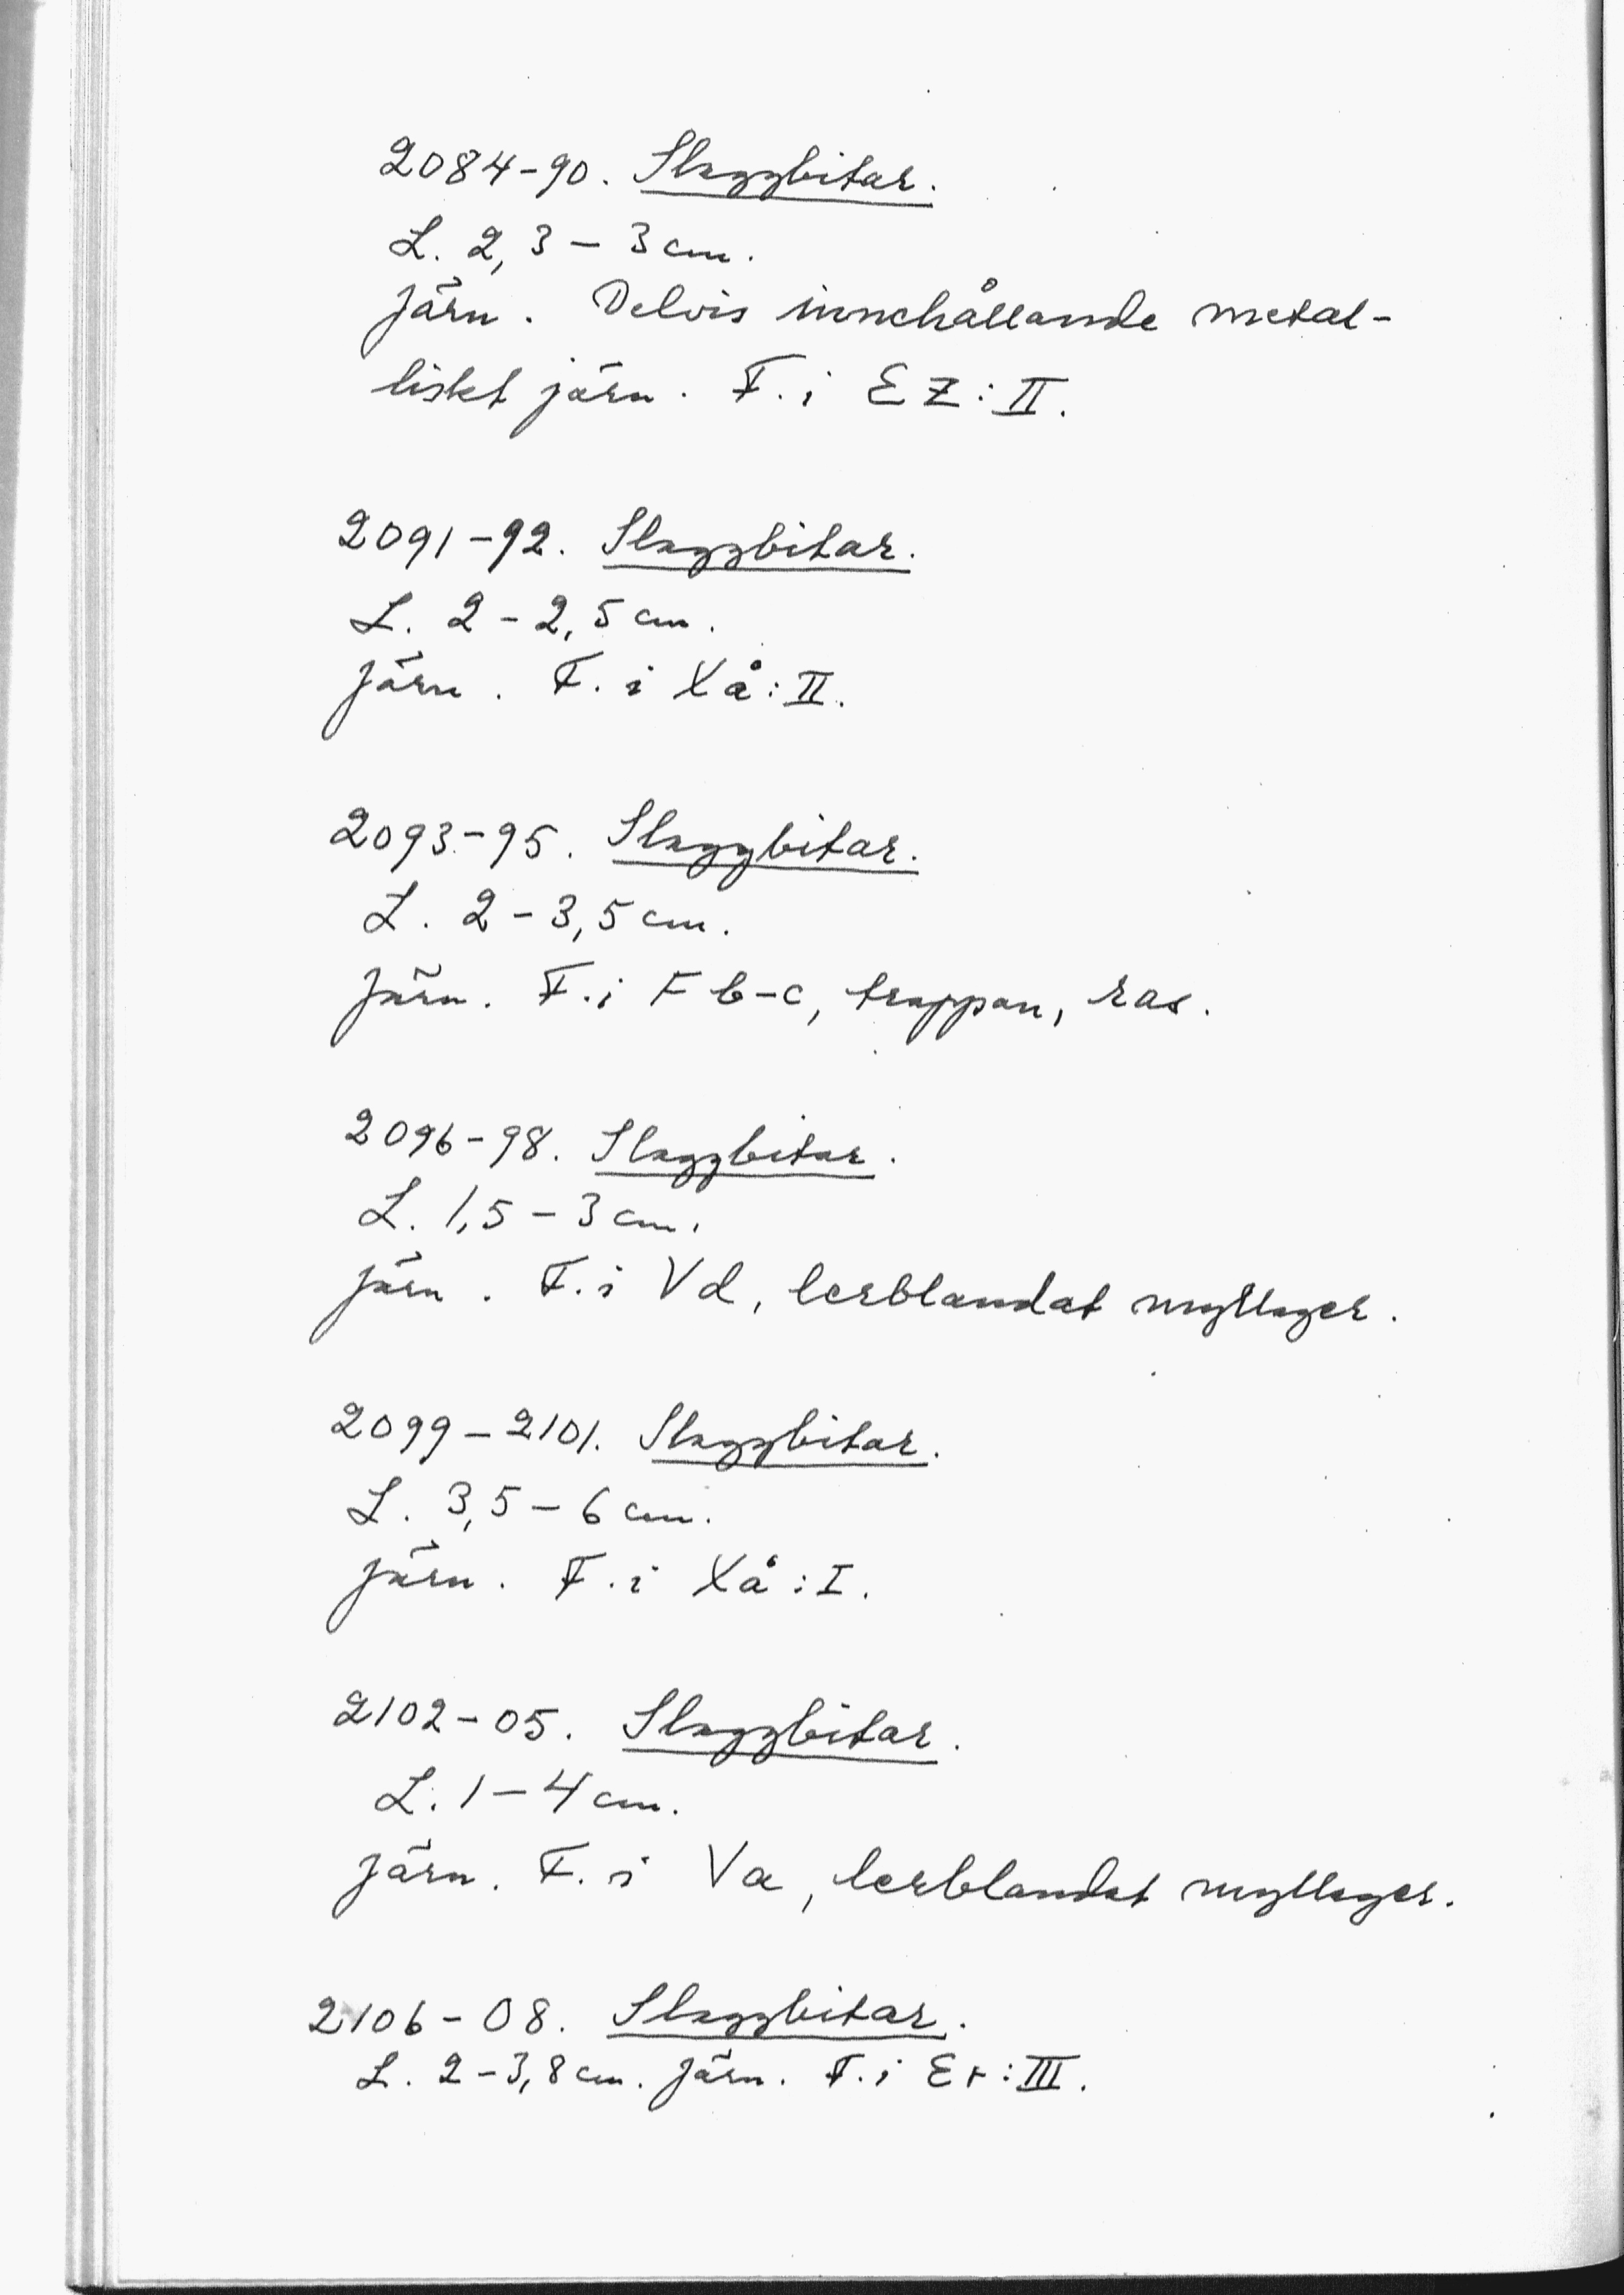 2084-90. Slaggbitar.
L. 2,3 - 3 cm.
Järn. Delvis innehållande metal-
liskt järn. F. i EZ:II.
2091-92. Slaggbitar.
L. 2-2,5 cm.
Järn. F. i Xå:II.
2093-95. Slaggbitar.
L. 2-3,5 cm.
Järn. F. i F b-c, trappan, ras.
2096-98. Slaggbitar.
L. 1,5-3 cm.
Järn. F. i Vd, lerblandat myllager.
2099-2101. Slaggbitar.
L. 3,5-6 cm.
Järn. F. i Xå:I.
2102-05. Slaggbitar.
L. 1-4 cm.
Järn. F. i Va, lerblandat myllager.
2106-08. Slaggbitar.
L. 2-3,8 cm. Järn. F. i Er:III.